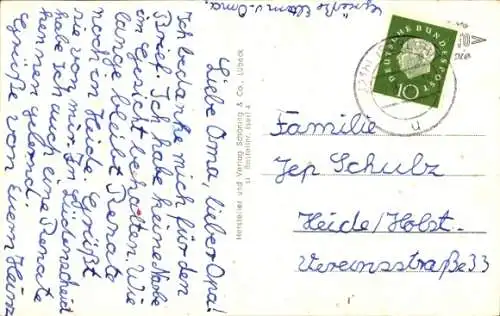 Liebe Oma, lieber Opa!
Ich bedanke mich für den
Brief. Ich habe keine Narbe
im Gesicht behalten. Wie
lange bleibt Renate
noch in Heide. Grüßt
sie von mir. In Lüdenscheid
habe ich auch eine Renate
kennen gelernt.
Grüße von Euerm Heinz
Grüße Eltern u. Oma.
Hersteller und Verlag Schöning & Co., Lübeck
DEUTSCHE BUNDESPOST
10
u
Familie
Jep Schulz
Heide/Holst.
Vereinsstraße 33